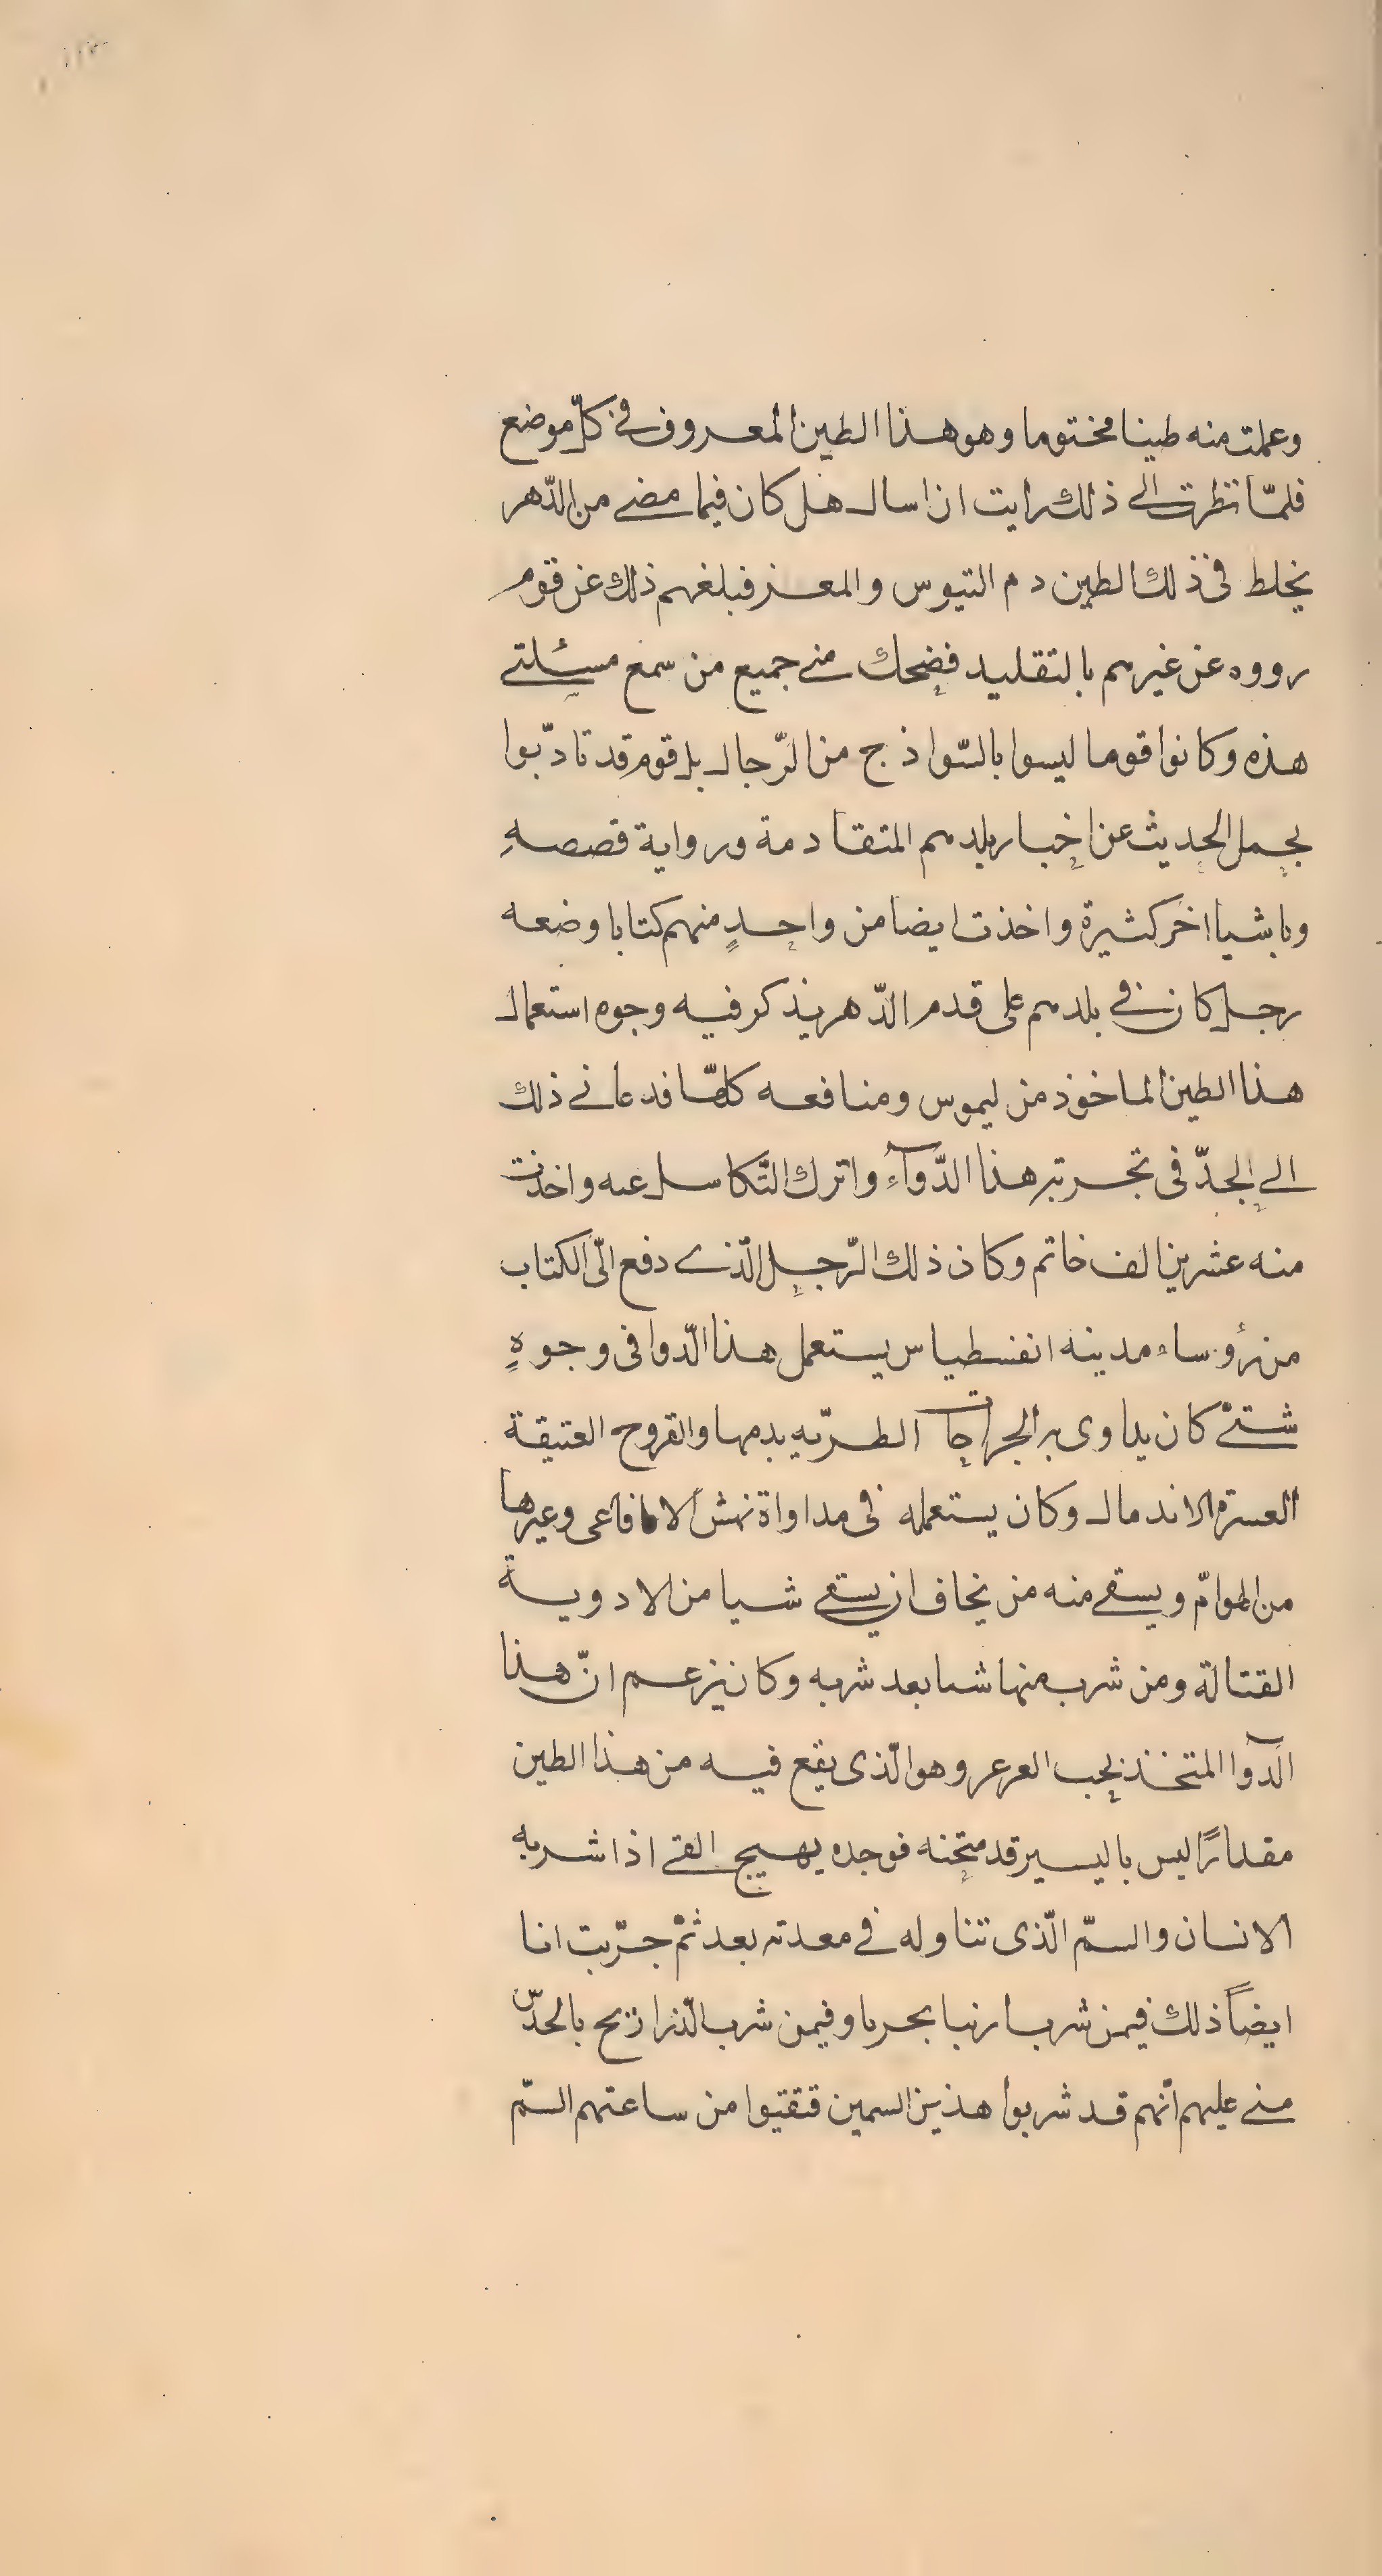 وعملت منه طينا مختوما وهو هذا الطين المعروف في كلّ موضع
فلمّا نظرت الى ذلك رايت ان اسال هل كان فيما مضى من الدّهر
يخلط فى ذلك الطين دم التيوس والمعز فبلغهم ذلك عن قوم
رووه عن غيرهم بالتقليد فضحك منى جميع من سمع مسئلتى
هذه وكانوا قوما ليسوا بالسّواذج من الرّجال بل قوم قد تادّبوا
بجمل الحديث عن اخبار بلدهم المتقادمة ورواية قصصهِ
وباشيا اخر كثيرة واخذت ايضا من واحدٍ منهم كتابا وضعه
رجل كان في بلدهم على قدم الدّهر يذكر فيه وجوه استعمال
هذا الطين الماخوذ من ليموس ومنافعه كلهّا فدعانى ذلك
الى الجدّ فى تجربة هذا الدّوآءِ واترك التّكاسل عنه واخذت
منه عشرين الف خاتم وكان ذلك الرّجل الّذى دفع الىّ الكتاب
من رؤساء مدينه انفسطياس يستعمل هذا الدّوا فى وجوهٍ
شتىّ كان يداوى به الجراحات الطريّه بدمها والقروح العتيقة
العسرة الاندمال وكان يستعمله فى مداواة نهش الافاعى وغيرها
من الهوامّ ويسقى منه من يخاف ان يسقى شيا من الادوية
القتالة ومن شرب منها شيا بعد شربه وكان يزعم انّ هذا
الدّوآا المتخذ بحب العرعر وهو الّذى يقع فيه من هذا الطين
مقدارًا ليس باليسير قد متحنه فوجده يهيج القى اذا شربه
الانسان والسمّ الّذى تناوله فى معدته بعد ثمّ جرّبت انا
ايضاً ذلك فيمن شرب ارنبا بحريا وفيمن شرب الذراريح بالحدس
منى عليهم انّهم قد شربوا هذين السمين فتقيوا من ساعتهم السمّ